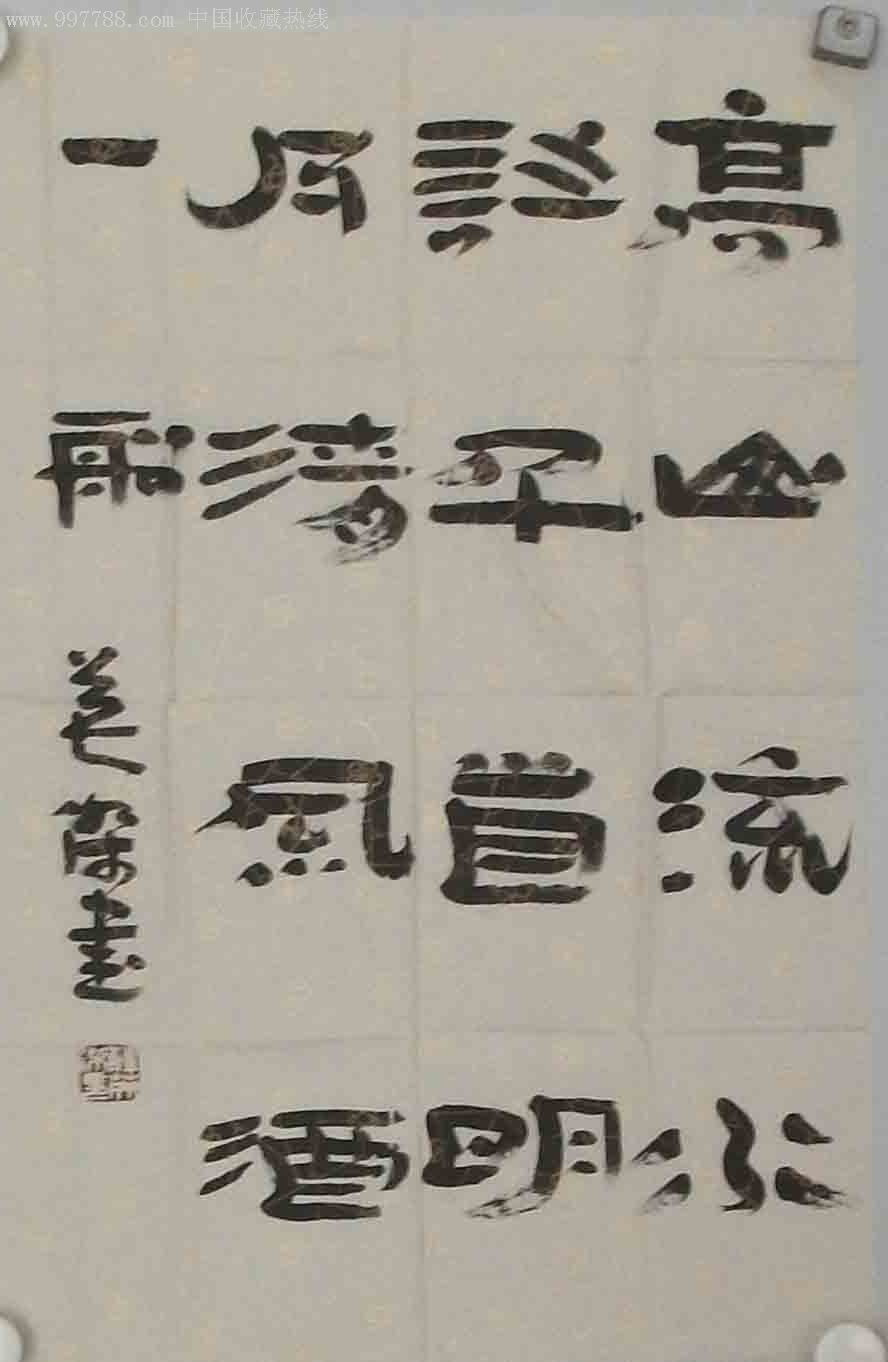 www.997788.com 中国收藏热线
高山流水
詩千首明
月清風酒
一船
書